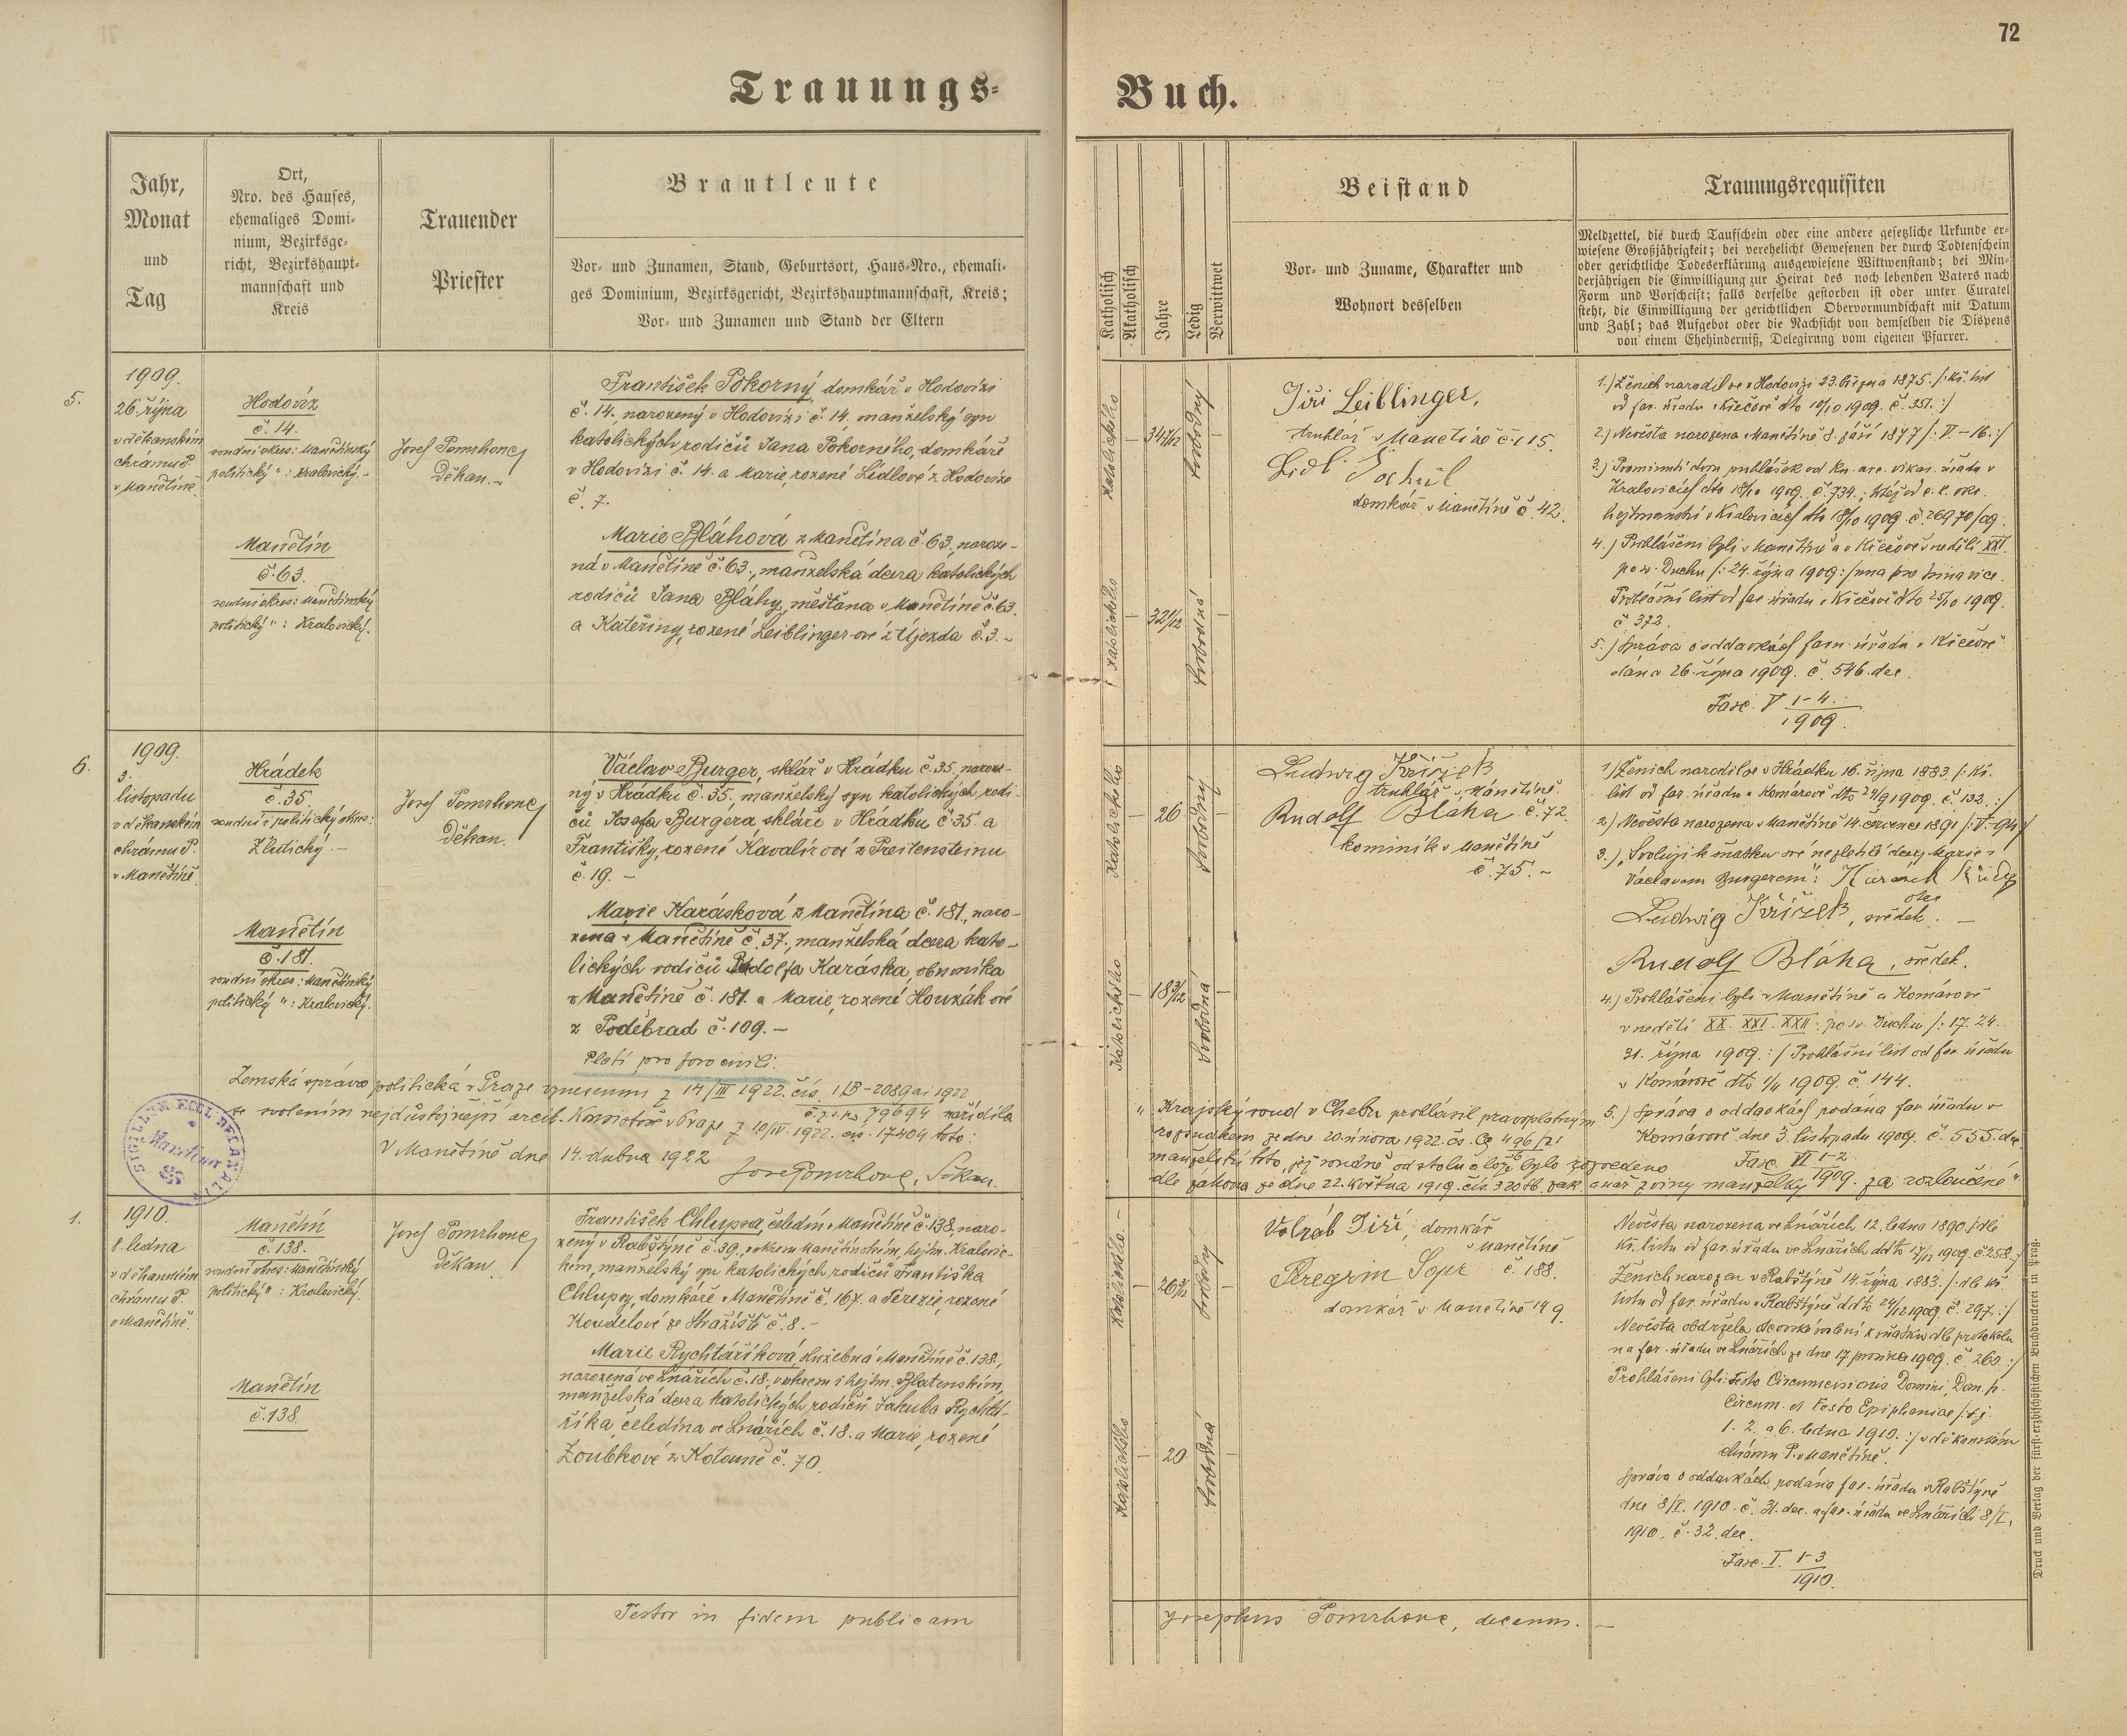 72
Trauungs=
Buch.
Jahr,
Monat
und
Tag
Ort,
Nro. des Hauses,
ehemaliges Domi-
nium, Bezirksge-
richt, Bezirkshaupt-
mannschaft und
Kreis
Trauender
Priester
Brautleute
Vor- und Zunamen, Stand, Geburtsort, Haus-Nro., ehemali-
ges Dominium, Bezirksgericht, Bezirkshauptmannschaft, Kreis;
Vor- und Zunamen und Stand der Eltern
Katholisch
Akatholisch
Jahre
Ledig
Verwittwet
Beistand
Vor- und Zuname, Charakter und
Wohnort desselben
Trauungsrequisiten
Meldzettel, die durch Taufschein oder eine andere gesetzliche Urkunde er-
wiesene Großjährigkeit; bei verehelicht Gewesenen der durch Todtenschein
oder gerichtliche Todeserklärung ausgewiesene Wittwenstand; bei Min-
derjährigen die Einwilligung zur Heirat des noch lebenden Vaters nach
Form und Vorschrift; falls derselbe gestorben ist oder unter Curatel
steht, die Einwilligung der gerichtlichen Obervormundschaft mit Datum
und Zahl; das Aufgebot oder die Nachsicht von demselben die Dispens
von einem Ehehinderniß, Delegirung vom eigenen Pfarrer.
5.
1909.
26. října
v děkanském
chrámu P.
v Manětíně.
Hodovíz
č. 14.
soudní okres: Manětínský
politický " : Kralovický.-
Manětín
č. 63.
soudní okres: Manětínský
politický " : Kralovický.
Josef Pomrhonc,
Děkan.
František Pokorný, domkář v Hodovízi
č. 14, narozený v Hodovízi č. 14, manželský syn
katolických rodičů Jana Pokorného, domkáře
v Hodovízi č. 14. a Marie, rozené Lidlové z Hodovíze
č. 7.
Marie Bláhová z Manětína č. 63, naroze-
ná v Manětíně č. 63., manželská dcera katolických
rodičů Jana Bláhy, měšťana v Manětíně č. 63
a Kateřiny, rozené Leiblinger-ové z Újezda č. 3.-
katolického
34 7/12
svobodný
katolického
32 1/12
svobodná
Jiří Leiblinger,
truhlář v Manětíně č. 115.
Lidl
domkář v Manětíně č. 42.
1.) Ženich narodil se v Hodovízi 23. března 1875. /: Kř. list
od far. úřadu v Křečově dto 10/10 1909. č. 351. :/
2.) Nevěsta narozena v Manětíně 8. září 1877 /: V. - 16. :/
3.) Prominutí dvou prohlášek od kn. arc. vikar. úřadu v
Kralovicích dto 18/10 1909. č. 734.; též od c. k. okr.
hejtmanství v Kralovicích dto 18/10 1909. č. 26970/09.
4.) Prohlášeni byli v Manětíně a v Křečově v neděli XXI.
po sv. Duchu /: 24. října 1909 :/
Prohlášní list od far. úřadu v Křečově dto 25/10 1909.
č. 373.
5.) Správa o oddavkách farn. úřadu v Křečově
dána 26. října 1909. č. 546. dec.
Fasc. V 1-4.
1909.
6.
1909.
3.
listopadu
v děkanském
chrámu P.
v Manětíně.
Hrádek
č. 35.
soudní i politický okres:
Žlutický.-
Manětín
č. 181.
soudní okres: Manětínský
politický " : Kralovický.
Josef Pomrhonc,
Děkan.
Václav Burger, sklář v Hrádku č. 35, naroze-
ný v Hrádku č. 35, manželský syn katolických rodi-
čů Josefa Burgera, skláře v Hrádku č. 35. a
Františky, rozené Kavalírové z Preitensteinu
č. 19.-
Marie Karásková z Manětína č. 181, naro-
zena v Manětíně č. 37., manželská dcera kato-
lických rodičů Rudolfa Karáska, obuvníka
v Manětíně č. 181. a Marie, rozené Houzákové
z Poděbrad č. 109.-
Platí pro foro civili:
Zemská správa politická v Praze vynesením z 14/III 1922. čís. 1 B-2089 ai 1922
č. z. s. p. 79694 nařídila
se svolením nejdůstojnější arcib. Konsistoře v Praze z 10/IV. 1922. čís. 17404 toto:
V Manětíně dne 14. dubna 1922
Jos. Pomrhonc, Děkan.
SIGILLUM ECCL. DECANALIS
katolického
26
svobodný
katolického
18 3/12
svobodná
Ludwig Křížek
truhlář v Manětíně
č. 72.
Rudolf Bláha
kominík v Manětíně
č. 75.-
1.) Ženich narodil se v Hrádku 16. října 1883. /: Kř.
list od far. úřadu v Komárově dto 24/9 1909. č. 132. :/
2.) Nevěsta narozena v Manětíně 14. července 1891 /: V.-94 :/
3.) "Svoluji k sňatku své nezletilé dcery Marie s
Václavem Burgerem":
otec
Ludwig Křížek, svědek.-
Rudolf Bláha, svědek.
4.) Prohlášeni byli v Manětíně a Komárově
v neděli XX. XXI. XXII. po sv. Duchu /: 17. 24.
31. října 1909. :/ Prohlášní list od far. úřadu
v Komárově dto 1/11 1909. č. 144.
5.) Správa o oddavkách podána far. úřadu v
Komárově dne 3. listopadu 1909. č. 555. dec.
Fasc. VI 1-2
1909.
"Krajský soud v Chebu prohlásil pravoplatným
rozsudkem ze dne 20. února 1922. čs. Cg 496/21
manželství toto, jež soudně od stolu a lože bylo rozvedeno
dle zákona ze dne 22. května 1919. čís. 320 Sb. zák. a nař. z viny manželky za rozloučené"
1.
1910.
8. ledna
v děkanském
chrámu P.
v Manětíně.
Manětín
č. 138.
soudní okres: Manětínský
politický " : Kralovický.
Manětín
č. 138.
Josef Pomrhonc,
Děkan
František Chlupsa, čeledín v Manětíně č. 138, naro-
zený v Rabštýně č. 39., v okresu Manětínském, hejtm. Kralovic-
kém, manželský syn katolických rodičů Františka
Chlupsy, domkáře v Manětíně č. 167. a Terezie, rozené
Koudelové ze Stražiště č. 8.-
Marie Rychtaříková, služebná v Manětíně č. 138,
narozená ve Lnářích č. 18., v okresu i hejtm. Blatenském,
manželská dcera katolických rodičů Jakuba Rychta-
říka, čeledína ve Lnářích č. 18. a Marie, rozené
Zoubkové z Kotouně č. 70.
katolického
26 3/12
svobodný
katolického
20
svobodná
Jiří, domkář
v Manětíně
č. 188.
Peregrin Sopr
domkář v Manětíně 149.
Nevěsta narozena ve Lnářích 12. ledna 1890. /: dle
kř. listu od far. úřadu ve Lnářích ddto 17/12 1909. č. 258. :/
Ženich narozen v Rabštýně 14. října 1883. /: dle kř.
listu od far. úřadu v Rabštýně ddto 24/12 1909. č. 297. :/
Nevěsta obdržela otcovské svolení k sňatku dle protokolu
na far. úřadu ve Lnářích ze dne 17. prosince 1909. č. 260. :/
Prohlášeni byli: Festo Circumcisionis Domini, Dom. p.
Circum. et Festo Epiphaniae /: t. j.
1. 2. a 6. ledna 1910. :/ v děkanském
chrámu P. v Manětíně.
Správa o oddavkách podána far. úřadu v Rabštýně
dne 8/I. 1910. č. 31. dec. a far. úřadu ve Lnářích 8/I.
1910. č. 32. dec.
Fasc. I. 1-3
1910.
Testor in fidem publicam
Josephus Pomrhonc, decanus.-
Druck und Verlag der fürst-erzbischöflichen Buchdruckerei in Prag.